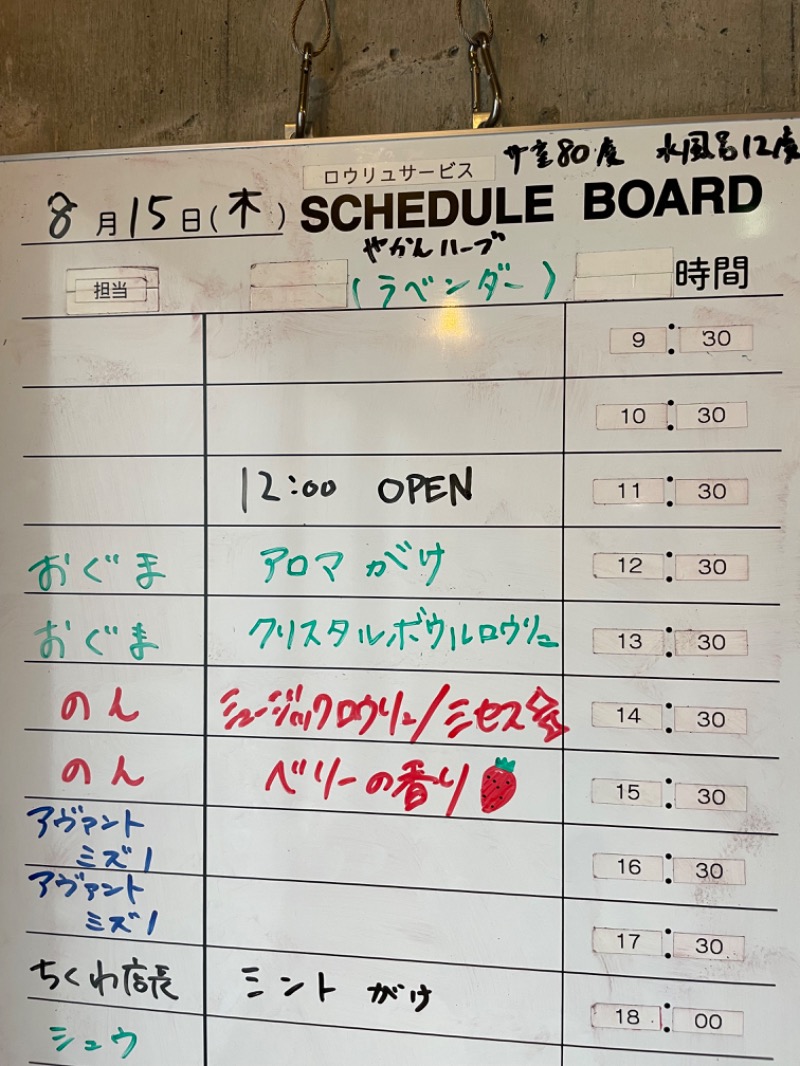 サ室80度 水風呂12度
ロウリュサービス
8月15日(木) SCHEDULE BOARD
やかんハーブ
担当 (ラベンダー) 時間
9:30
10:30
12:00 OPEN 11:30
おぐま アロマがけ 12:30
おぐま クリスタルボウルロウリュ 13:30
のん ミュージックロウリュ/ミセス会 14:30
のん ベリーの香り 15:30
アヴァント
ミズノ 16:30
アヴァント
ミズノ 17:30
ちくわ店長 ミントがけ 18:00
シュウ